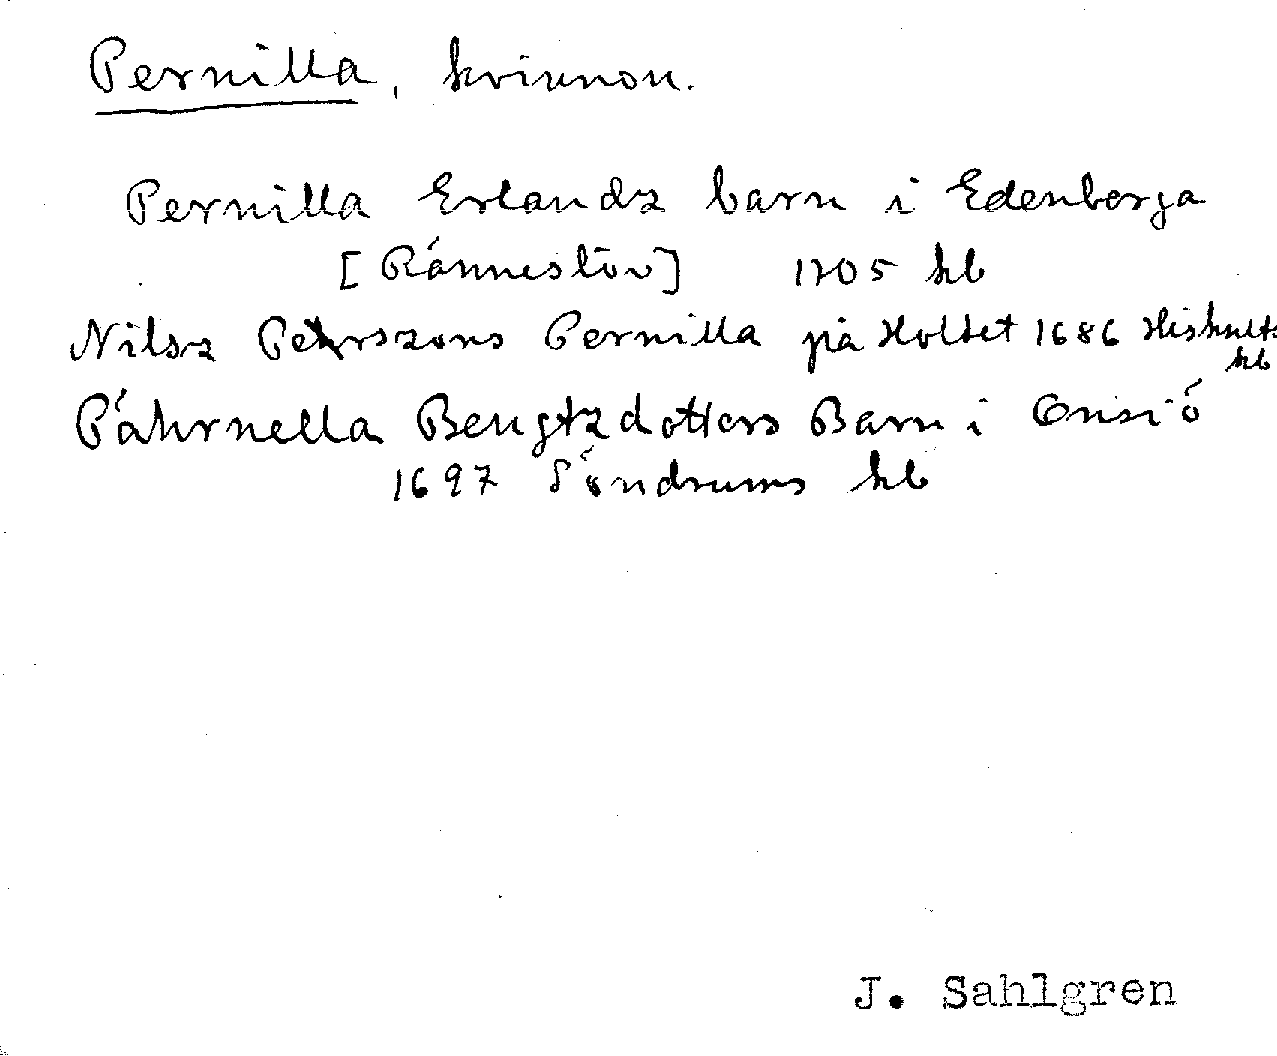 Pernilla, kvinnon.
Pernilla Erlandz barn i Edenberga
[Ränneslöv] 1705 kb
Nilsz Pehrszons Pernilla på Holtet 1686 Hishults
kb
Pährnella Bengtzdotters Barn i Onsiö
1697 Söndrums kb
J. Sahlgren